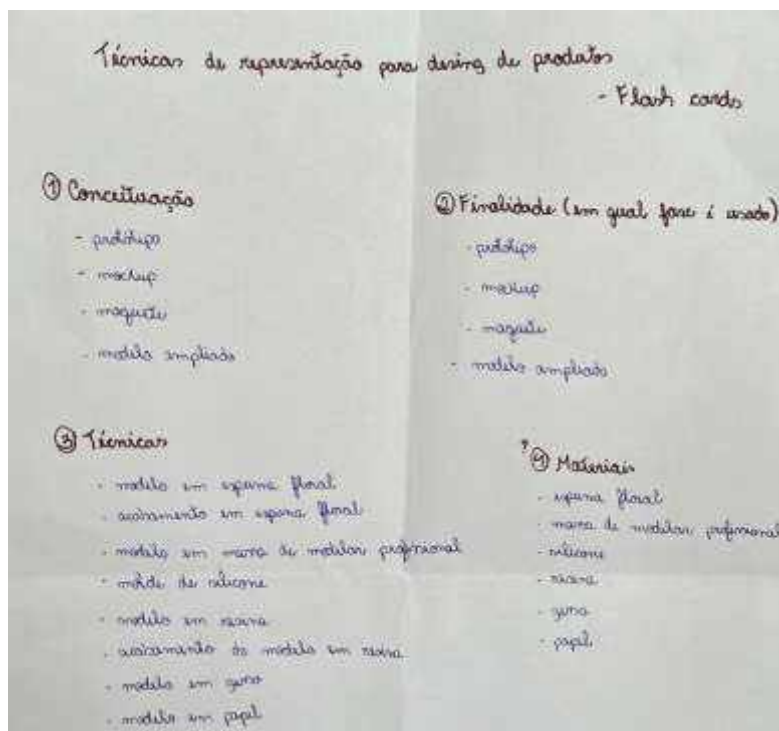 Técnicas de representação para desing de produtos
- Flash cards
① Conceituação
- protótipo
- mockup
- maquete
- modelo ampliado
② Finalidade (em qual fase é usado)
- protótipo
- mockup
- maquete
- modelo ampliado
③ Técnicas
- modelo em espuma floral
- acabamento em espuma floral
- modelo em massa de modelar profissional
- molde de silicone
- modelo em resina
- acabamento do modelo em resina
- modelo em gesso
- modelo em papel
? ④ Materiais
- espuma floral
- massa de modelar profissional
- silicone
- resina
- gesso
- papel